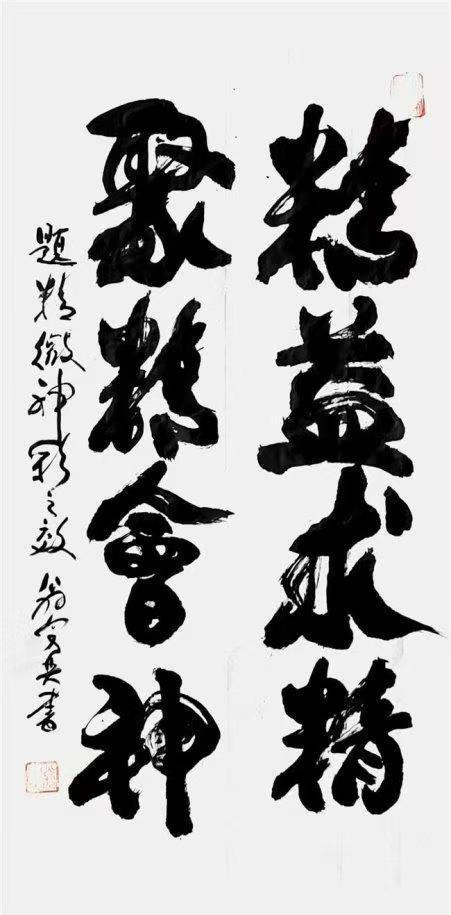 精益求精
聚精會神
題精微神彩之效 翁寫奐書